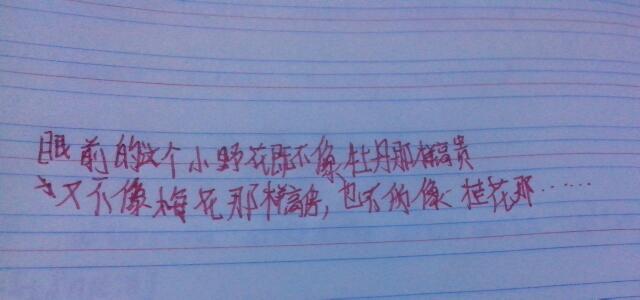 眼前的这个小野花既不像牡丹那样高贵
又不像梅花那样高傲，也不的像桂花那……